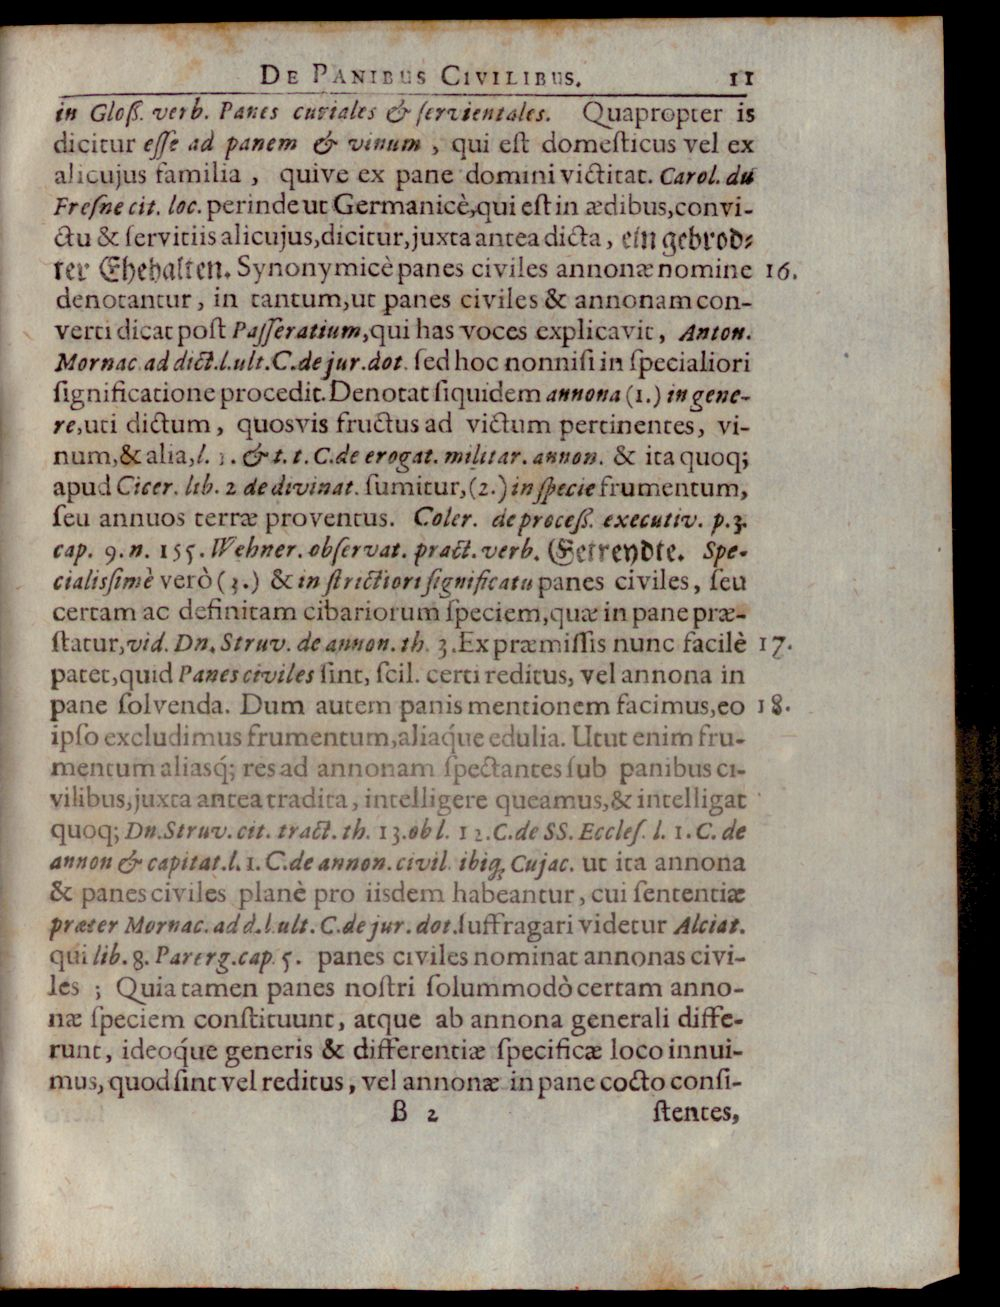 DE PANIBUS CIVILIBUS. 11
in Gloß. verb. Panes curiales & ſervientales. Quapropter is
dicitur eſſe ad panem & vinum , qui eſt domeſticus vel ex
alicujus familia , quive ex pane domini victitat. Carol. du
Freſne cit. loc. perinde ut Germanicè, qui eſt in ædibus, convi-
ctu & ſervitiis alicujus, dicitur, juxta antea dicta, ein gebrod-
ter Ehehalten. Synonymicè panes civiles annonæ nomine 16.
denotantur, in tantum, ut panes civiles & annonam con-
verti dicat poſt Paſſeratium, qui has voces explicavit, Anton.
Mornac. ad dict. l. ult. C. de jur. dot. ſed hoc nonniſi in ſpecialiori
ſignificatione procedit. Denotat ſiquidem annona (1.) in gene-
re, uti dictum, quosvis fructus ad victum pertinentes, vi-
num, & alia, l. 1. & t. t. C. de erogat. militar. annon. & ita quoq;
apud Cicer. lib. 2 de divinat. ſumitur, (2.) in ſpecie frumentum,
ſeu annuos terræ proventus. Coler. de proceß. executiv. p. 3.
cap. 9. n. 155. Wehner. obſervat. pract. verb. Getreydte. Spe-
cialiſſimè verò (3.) & in ſtrictiori ſignificatu panes civiles, ſeu
certam ac definitam cibariorum ſpeciem, quæ in pane præ-
ſtatur, vid. Dn. Struv. de annon. th. 3. Ex præmiſſis nunc facilè 17.
patet, quid Panes civiles ſint, ſcil. certi reditus, vel annona in
pane ſolvenda. Dum autem panis mentionem facimus, eo 18.
ipſo excludimus frumentum, aliaq́ue edulia. Utut enim fru-
mentum aliasq́; res ad annonam ſpectantes ſub panibus ci-
vilibus, juxta antea tradita, intelligere queamus, & intelligat
quoq; Dn. Struv. cit. tract. th. 13. ob l. 12. C. de SS. Eccleſ. l. 1. C. de
annon & capitat. l. 1. C. de annon. civil. ibiq; Cujac. ut ita annona
& panes civiles planè pro iisdem habeantur, cui ſententiæ
præter Mornac. ad d. l. ult. C. de jur. dot. ſuffragari videtur Alciat.
qui lib. 8. Parerg. cap. 5. panes civiles nominat annonas civi-
les ; Quia tamen panes noſtri ſolummodò certam anno-
næ ſpeciem conſtituunt, atque ab annona generali diffe-
runt, ideoq́ue generis & differentiæ ſpecificæ loco innui-
mus, quod ſint vel reditus, vel annonæ in pane cocto conſi-
B 2 ſtentes,